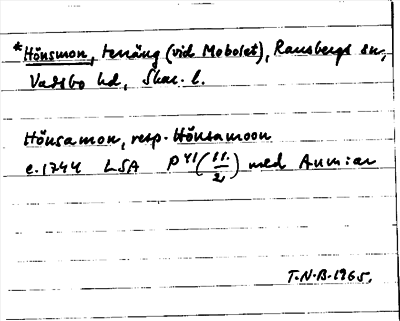 *Hönsmon, terräng (vid Mobolet), Ransbergs sn,
Vadsbo hd, Skar. l.
Hönsamon, resp. Hönsamoon
e. 1744 LSA P 41 (11:/2) med Anm:ar
T.N.B. 1965.